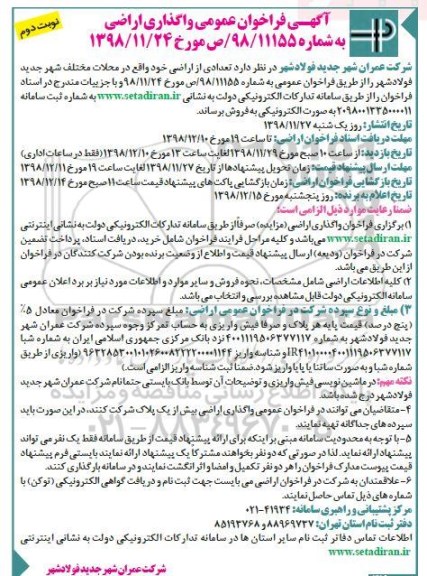 آگهـی فراخوان عمومی واگذاری اراضی
نوبت دوم
به شماره ۹۸/۱۱۱۵۵/ص مورخ ۱۳۹۸/۱۱/۲۴
شرکت عمران شهر جدید فولادشهر در نظر دارد تعدادی از اراضی خود واقع در محلات مختلف شهر جدید
فولادشهر را از طریق فراخوان عمومی به شماره ۹۸/۱۱۱۵۵/ص مورخ ۹۸/۱۱/۲۴ و با جزییات مندرج در اسناد
فراخوان را از طریق سامانه تدارکات الکترونیکی دولت به نشانی www.setadiran.ir به شماره ثبت سامانه
۲۰۹۸۰۰۱۳۳۵۰۰۰۰۱۱ به صورت الکترونیکی به فروش برساند.
تاریخ انتشار: روز یک شنبه ۱۳۹۸/۱۱/۲۷
مهلت دریافت اسناد فراخوان اراضی: تا ساعت ۱۹ مورخ ۱۳۹۸/۱۲/۱۰
تاریخ بازدید: از ساعت ۱۰ صبح مورخ ۱۳۹۸/۱۱/۲۹ لغایت ساعت ۱۳ مورخ ۱۳۹۸/۱۲/۱۰ (فقط در ساعات اداری)
مهلت ارسال پیشنهاد قیمت: زمان تحویل پیشنهادها از تاریخ ۱۳۹۸/۱۱/۲۷ لغایت ساعت ۱۹ مورخ ۱۳۹۸/۱۲/۱۱
تاریخ بازگشایی فراخوان اراضی: زمان بازگشایی پاکت های پیشنهاد قیمت ساعت ۱۱ صبح مورخ ۱۳۹۸/۱۲/۱۴
تاریخ اعلام به برنده: روز پنجشنبه مورخ ۱۳۹۸/۱۲/۱۵
ضمنا رعایت موارد ذیل الزامی است:
۱) برگزاری فراخوان واگذاری اراضی (مزایده) صرفاً از طریق سامانه تدارکات الکترونیکی دولت به نشانی اینترنتی
www.setadiran.ir می باشد و کلیه مراحل فرایند فراخوان شامل خرید، دریافت اسناد، پرداخت تضمین
شرکت در فراخوان (ودیعه) ارسال پیشنهاد قیمت و اطلاع از وضعیت برنده بودن شرکت کنندگان در فراخوان
از این طریق می باشد.
۲) کلیه اطلاعات اراضی شامل مشخصات، نحوه فروش و سایر موارد و اطلاعات مورد نیاز بر برد اعلان عمومی
سامانه الکترونیکی دولت قابل مشاهده بررسی و انتخاب می باشد.
۳) مبلغ و نوع سپرده شرکت در فراخوان عمومی اراضی: مبلغ سپرده شرکت در فراخوان معادل ۵%
(پنج درصد) قیمت پایه هر پلاک و صرفا فیش واریزی به حساب تمرکز وجوه سپرده شرکت عمران شهر
جدید فولادشهر به شماره ۴۰۰۱۱۱۹۵۰۶۳۷۷۱۱۷ نزد بانک مرکزی جمهوری اسلامی ایران به شماره شبا
و شناسه واریز (واریزی از طریق
شماره شبا و به صورت ساتنا یا پایا واریز شود. ضمنا ثبت شناسه واریز الزامی است.)
نکته مهم: در ماشین نویسی فیش واریزی و توضیحات آن توسط بانک بایستی حتما نام شرکت عمران شهر جدید
فولادشهر درج شده باشد
۴-متقاضیان می توانند در فراخوان عمومی واگذاری اراضی بیش از یک پلاک شرکت کنند، در این صورت باید
سپرده های جداگانه تهیه نمایند.
۵- با توجه به محدودیت سامانه مبنی بر اینکه برای ارائه پیشنهاد قیمت از طریق سامانه فقط یک نفر می تواند
پیشنهاد ارائه نماید. لذا در صورتی که دو نفر بخواهند مشترکا یک پیشنهاد ارائه نمایند بایستی فرم پیشنهاد
قیمت پیوست مدارک فراخوان را هر دو نفر تکمیل و امضا و اثر انگشت نمایند و در سامانه بارگذاری کنند.
۶-علاقمندان به شرکت در فراخوان اراضی می بایست جهت ثبت نام و دریافت گواهی الکترونیکی (توکن) با
شماره های ذیل تماس حاصل نمایند.
مرکز پشتیبانی و راهبری سامانه: ۴۱۹۳۴-۰۲۱
دفتر ثبت نام استان تهران: ۸۸۹۶۹۷۳۷ و ۸۵۱۹۳۷۶۸
اطلاعات تماس دفاتر ثبت نام سایر استان ها در سامانه تدارکات الکترونیکی دولت به نشانی اینترنتی
www.setadiran.ir
شرکت عمران شهر جدید فولادشهر